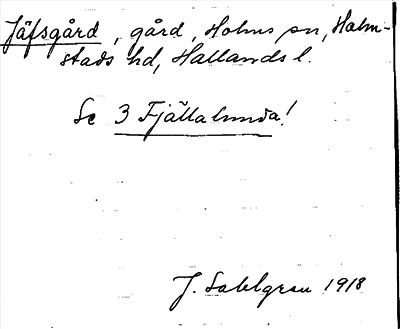 Jäfsgård, gård, Holms sn, Halm-
stads hd, Hallands l.
Se 3 Fjällalunda!
J. Sahlgren 1918